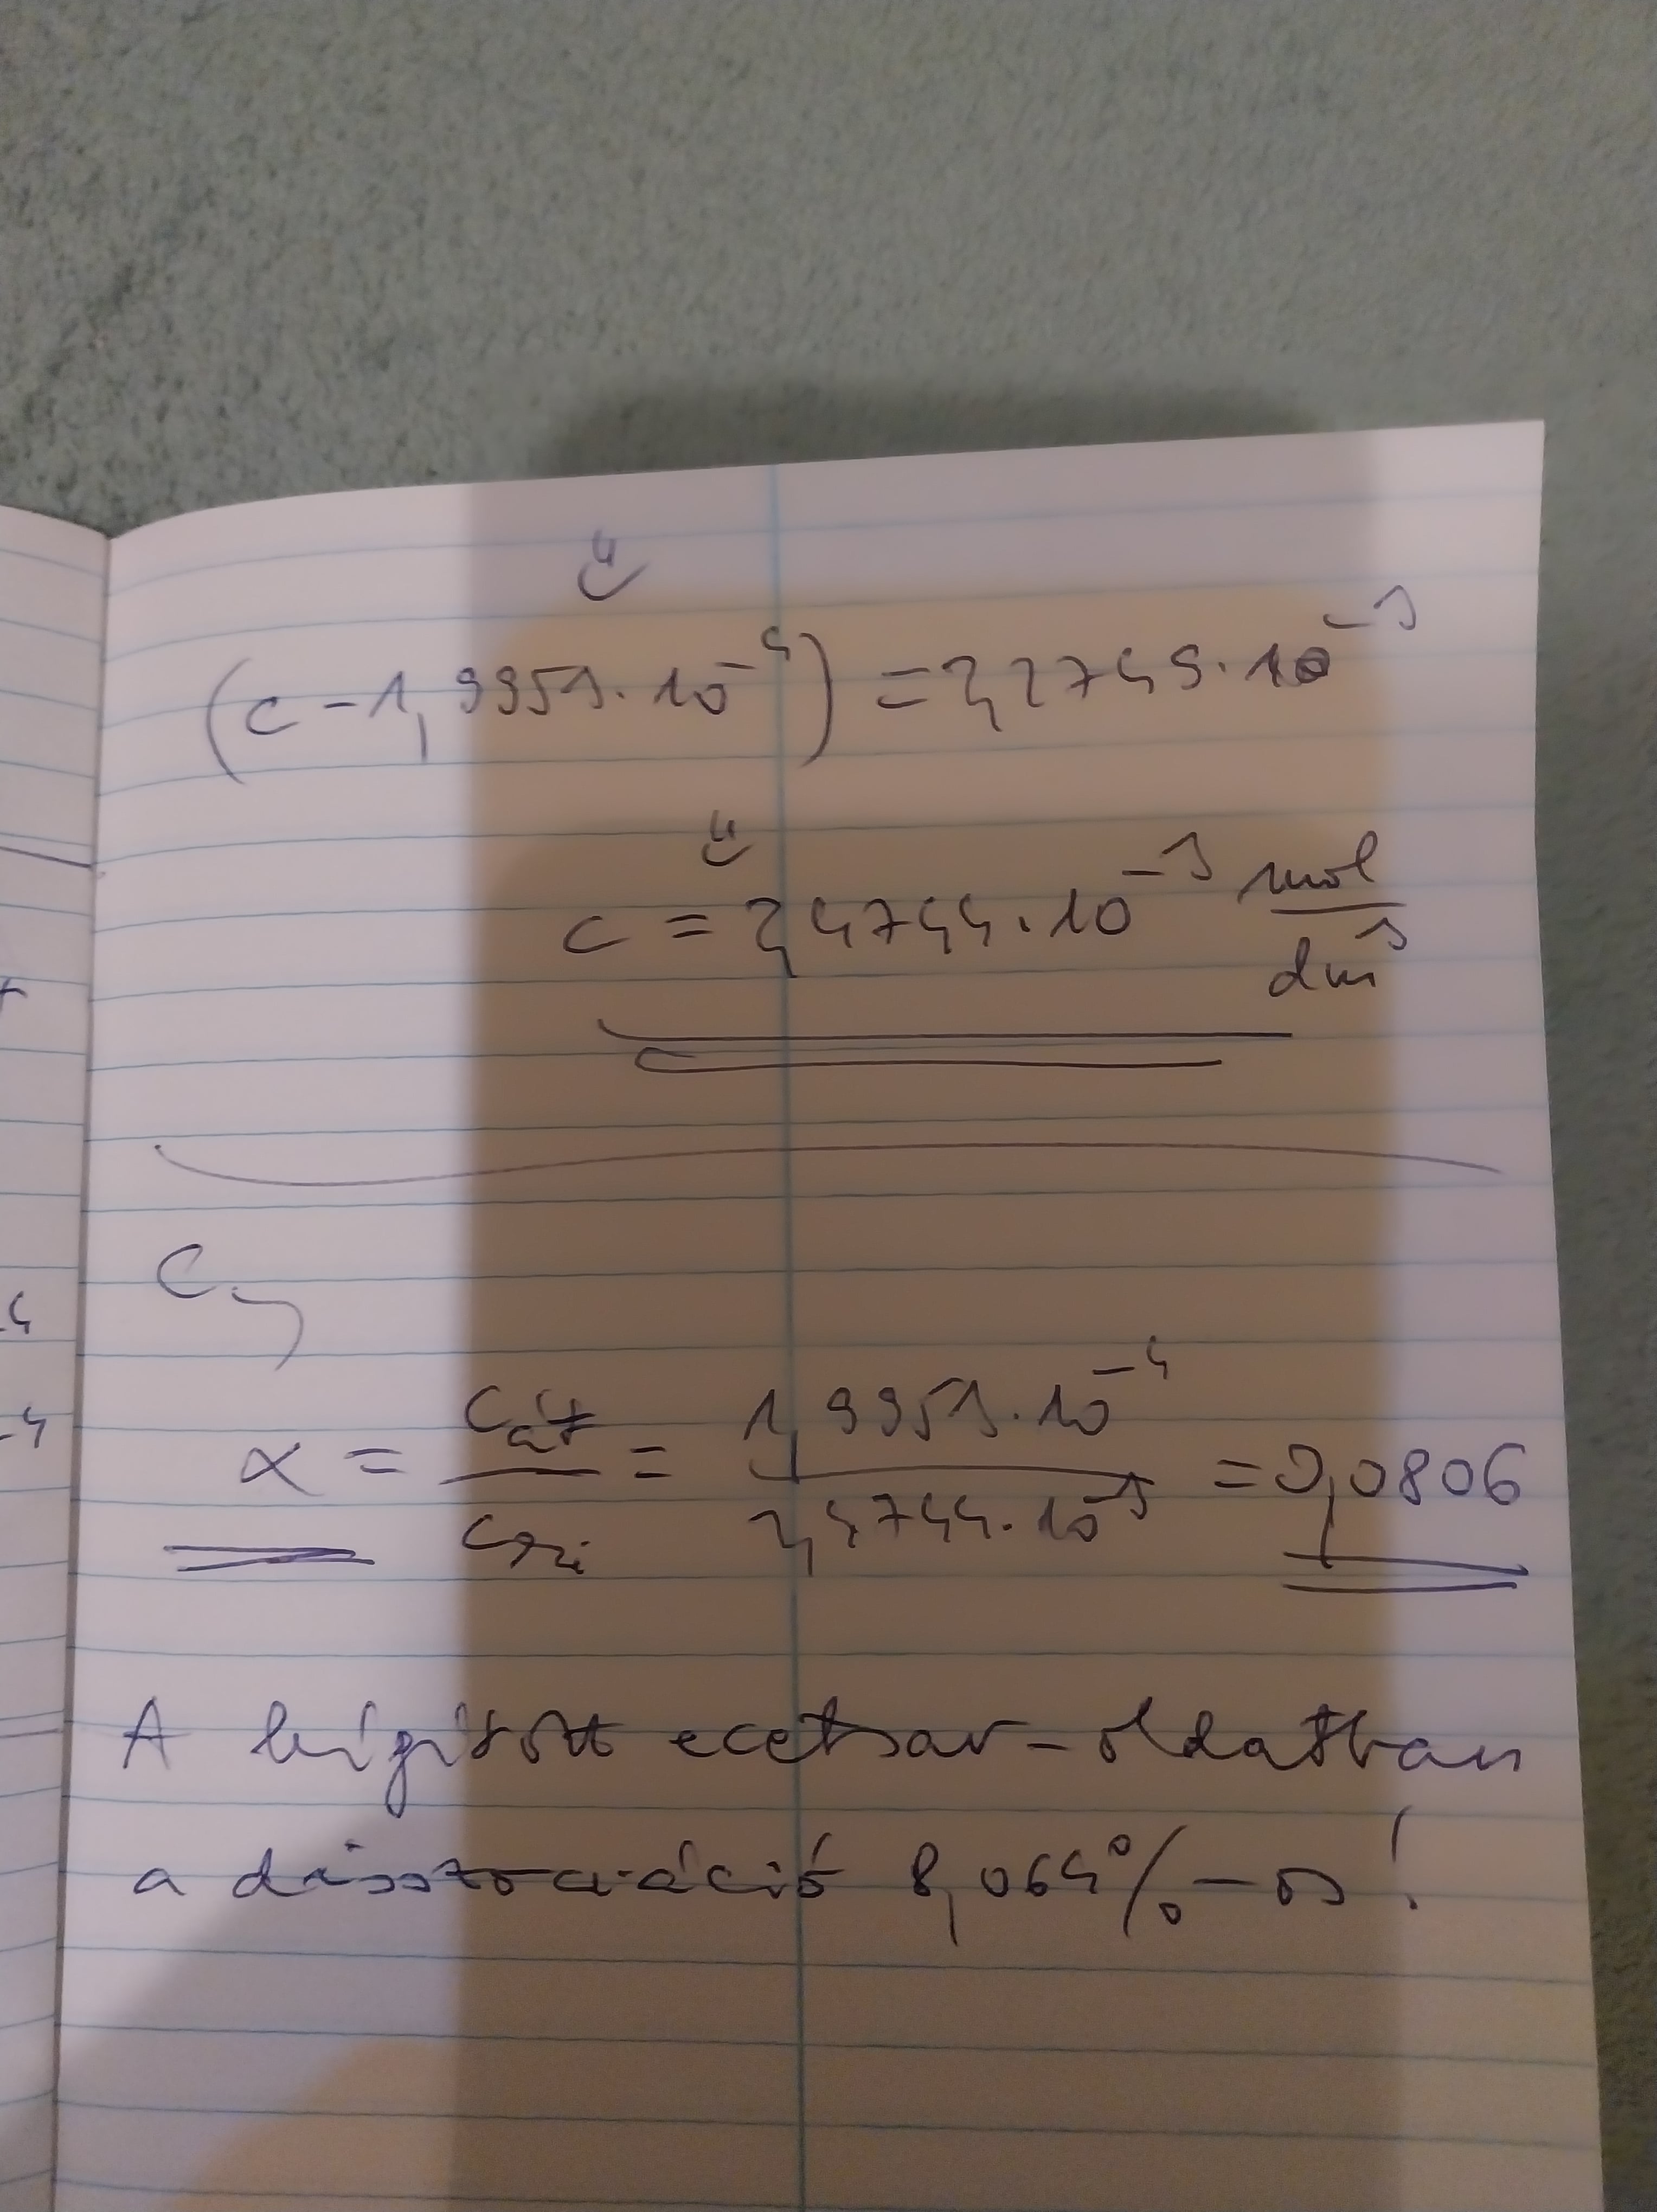 (c - 1,9953·10⁻⁴) = 2,2749·10⁻³
c = 2,4744·10⁻³ mol/dm³
C,
α = c_át/c_ki = 1,9953·10⁻⁴/2,4744·10⁻³ = 0,0806
A hígított ecetsav-oldatban
a disszociáció 8,064%-os!
-4
-4